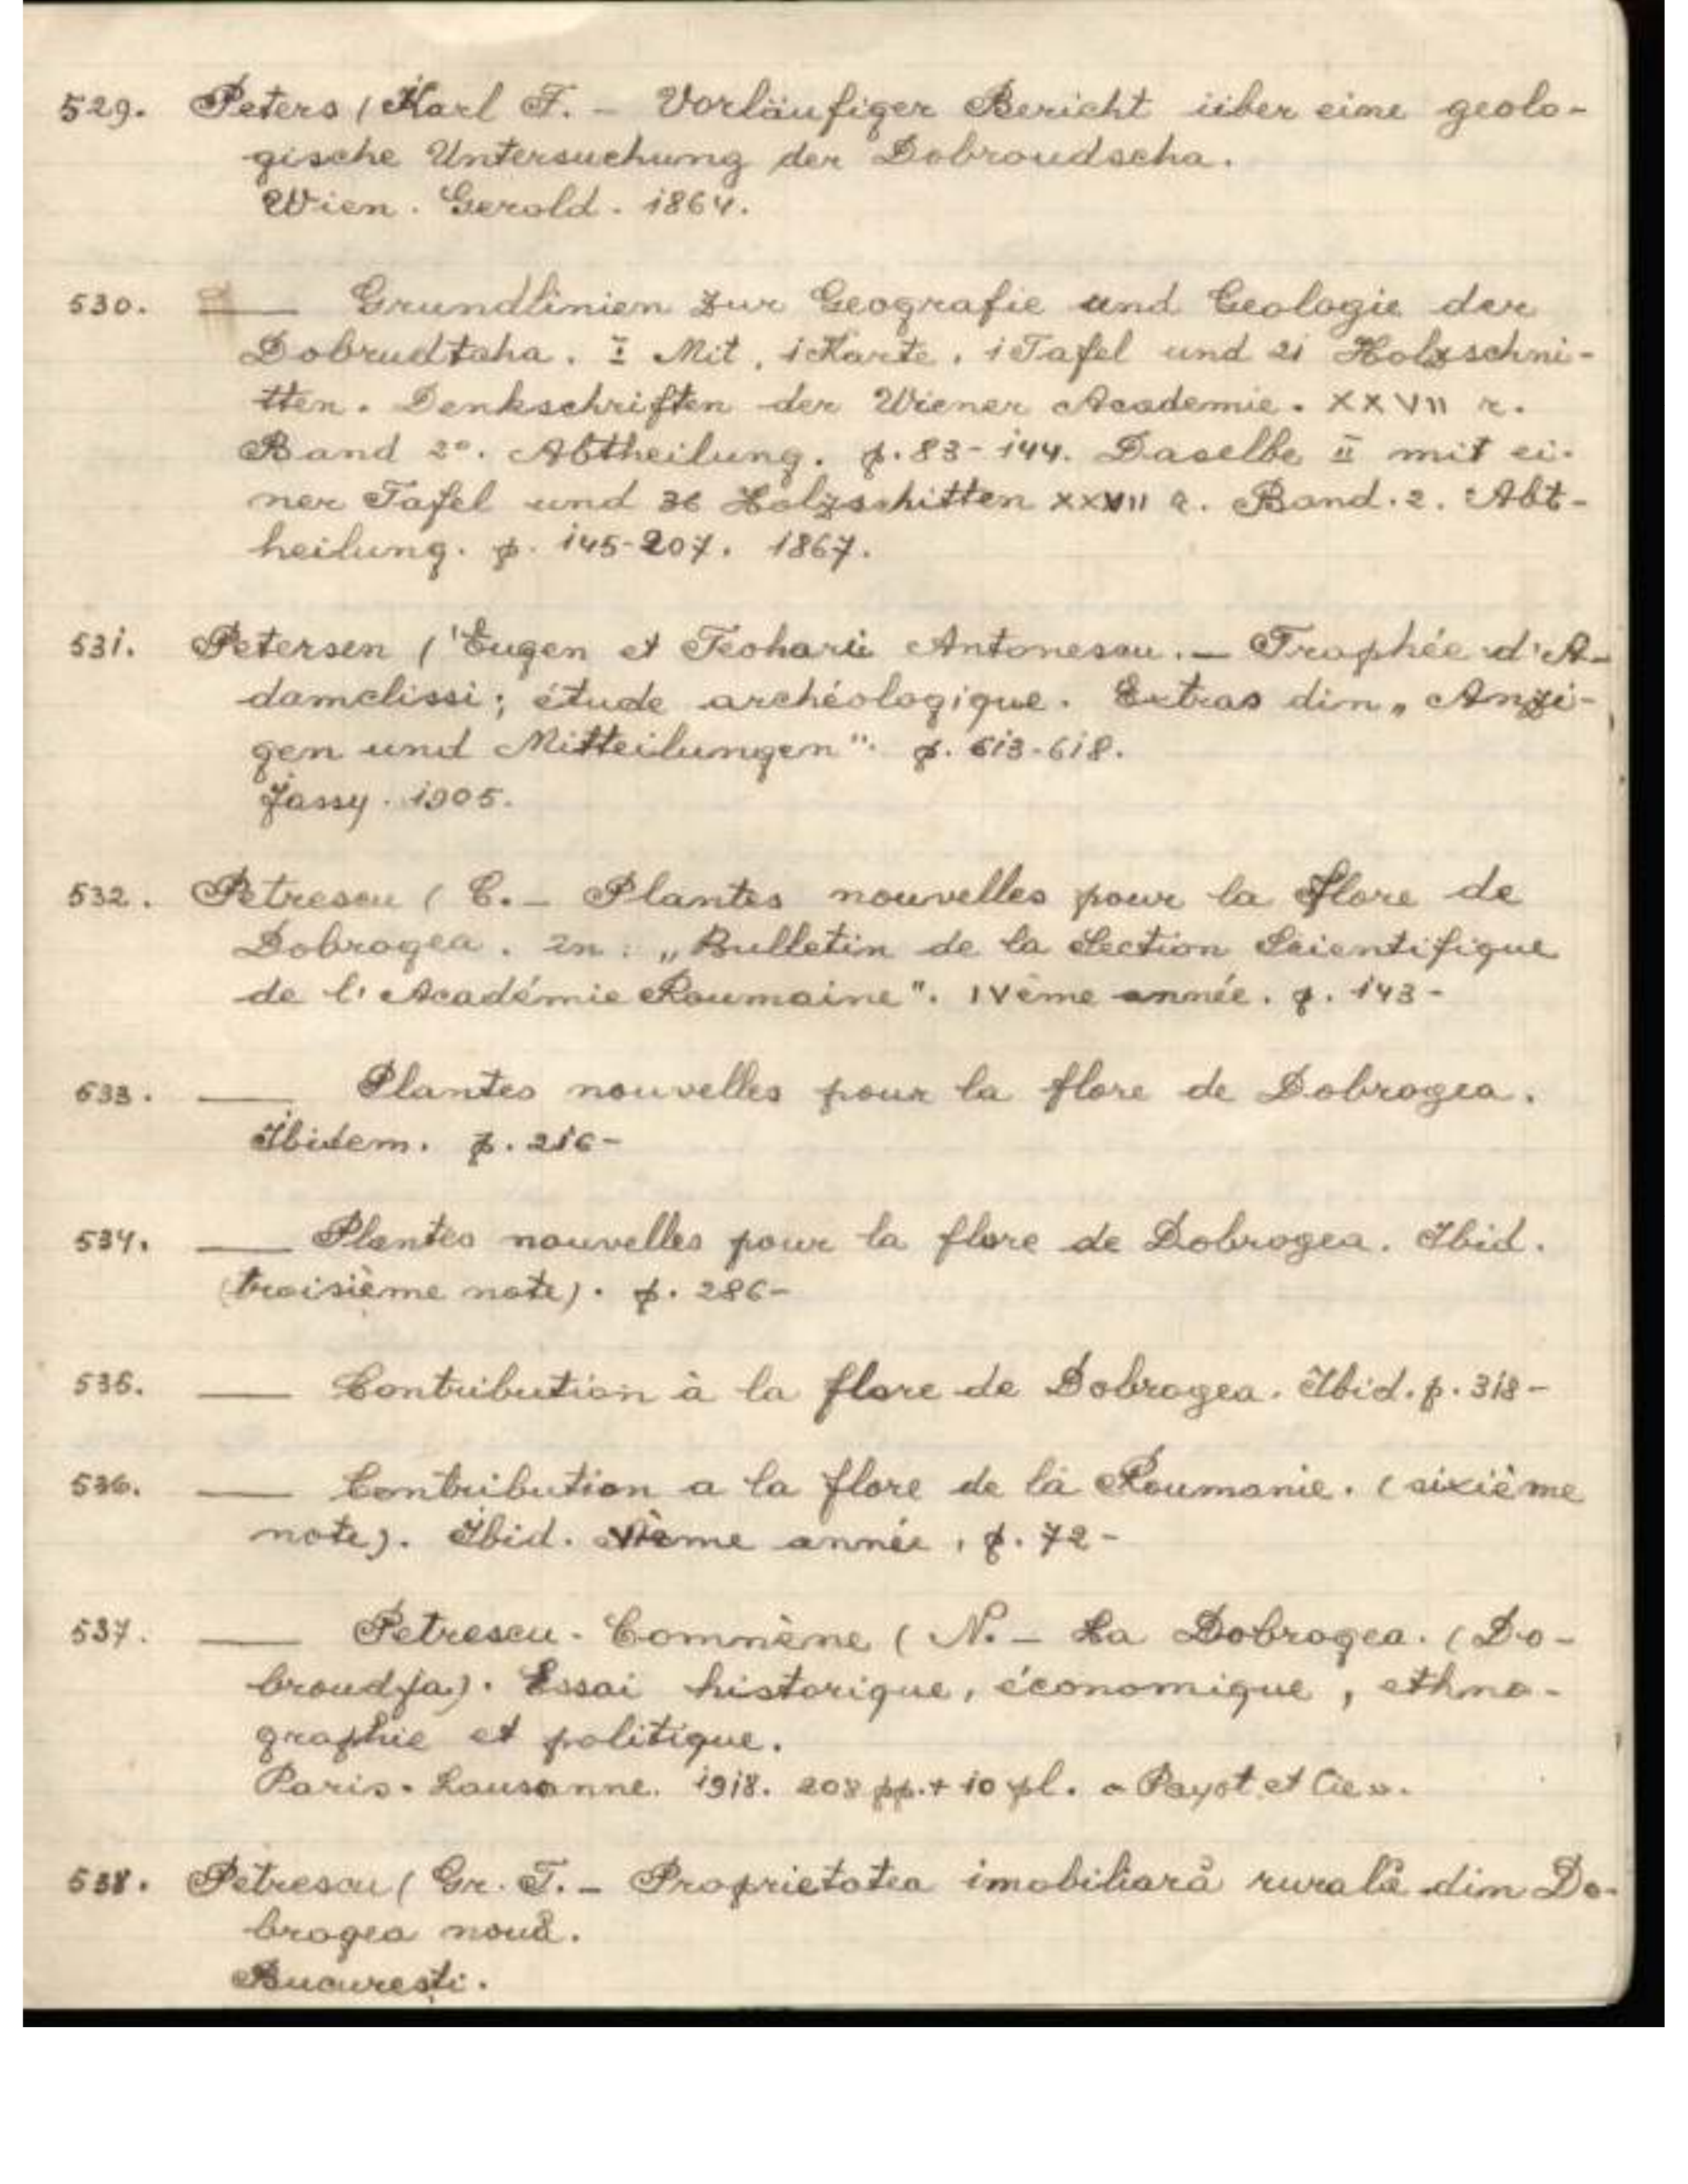 529. Peters (Karl F. – Vorläufiger Bericht über eine geolo-
gische Untersuchung der Dobroudscha.
Wien. Gerold. 1864.
530. —— Grundlinien zur Geografie und Geologie der
Dobrudtaha. I Mit, 1 Karte, 1 Tafel und 21 Holzschni-
tten. Denkschriften der Wiener Academie. XXVII r.
Band 2º. Abtheilung. p. 83-144. Daselbe II mit ei-
ner Tafel und 36 Holzschitten XXVII r. Band. 2. Abt-
heilung. p. 145-207. 1867.
531. Petersen (Eugen et Teoharie Antonescu. – Trophée d'A-
damclissi; étude archéologique. Extras din „Anzei-
gen und Mitteilungen". p. 613-618.
Jassy. 1905.
532. Petrescu (C. – Plantes nouvelles pour la flore de
Dobrogea. In: „Bulletin de la Section Scientifique
de l'Académie Roumaine". IVème année. p. 143-
533. —— Plantes nouvelles pour la flore de Dobrogea.
Ibidem. p. 216-
534. —— Plantes nouvelles pour la flore de Dobrogea. Ibid.
(troisième note). p. 286-
535. —— Contribution à la flore de Dobrogea. Ibid. p. 318-
536. —— Contribution a la flore de la Roumanie. (sixième
note). Ibid. VIème année, p. 72-
537. —— Petrescu-Comnène (N. – La Dobrogea. (Do-
broudja). Essai historique, économique, ethno-
graphie et politique.
Paris-Lausanne. 1918. 208 pp. + 10 pl. « Payot et Cie ».
538. Petrescu (Gr. T. – Proprietatea imobiliară rurală din Do-
brogea nouă.
București.